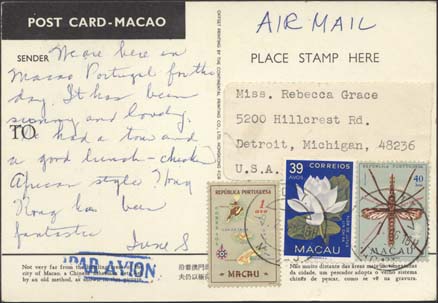 POST CARD-MACAO
AIR MAIL
PLACE STAMP HERE
SENDER
We are here in
Macao Portugal for the
day. It has been
sunny and lovely.
TO
had a tour and
a good lunch - chicken
African style Hong
Kong has been
fantastic
June S
OFFSET PRINTING BY THE CONTINENTAL PRINTING CO., LTD. HONG KONG
Miss. Rebecca Grace
5200 Hillcrest Rd.
Detroit, Michigan, 48236
U.S.A.
REPÚBLICA PORTUGUESA
1 avo
MACAU
39
AVOS
CORREIOS
MACAU
REPÚBLICA PORTUGUESA
40
MACAU
PAR AVION
Not very far from the
city of Macao, a Chinese
by an old method, as shown in this
Não muito distante das áreas mais
da cidade, um pescador adopta o velho sistema
chinês de pescar, como se vê na gravura.